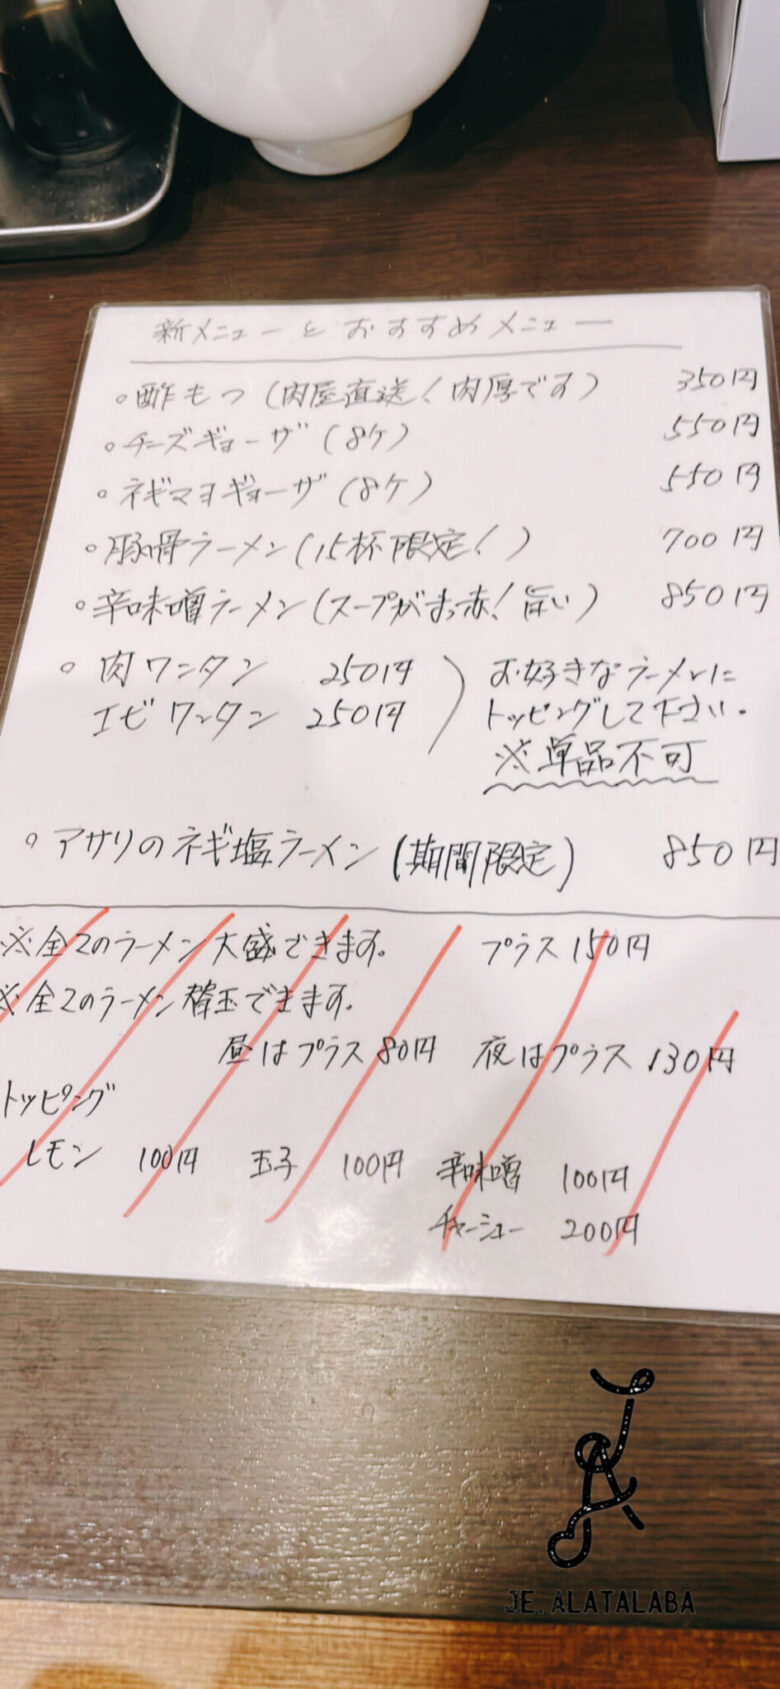 新メニューとおすすめメニュー
。酢もつ(肉屋直送!肉厚です) 350円
。チーズギョーザ(8ケ) 550円
。ネギマヨギョーザ(8ケ) 550円
。豚骨ラーメン(15杯限定!) 700円
。辛味噌ラーメン(スープがまっ赤!旨い) 850円
。肉ワンタン 250円 ) お好きなラーメンに
エビワンタン 250円 トッピングして下さい.
※単品不可
。アサリのネギ塩ラーメン(期間限定) 850円
※全てのラーメン大盛できます。 プラス150円
※全てのラーメン替玉できます。
昼はプラス80円 夜はプラス130円
トッピング
レモン 100円 玉子 100円 辛味噌 100円
チャーシュー 200円
JE. ALATALABA